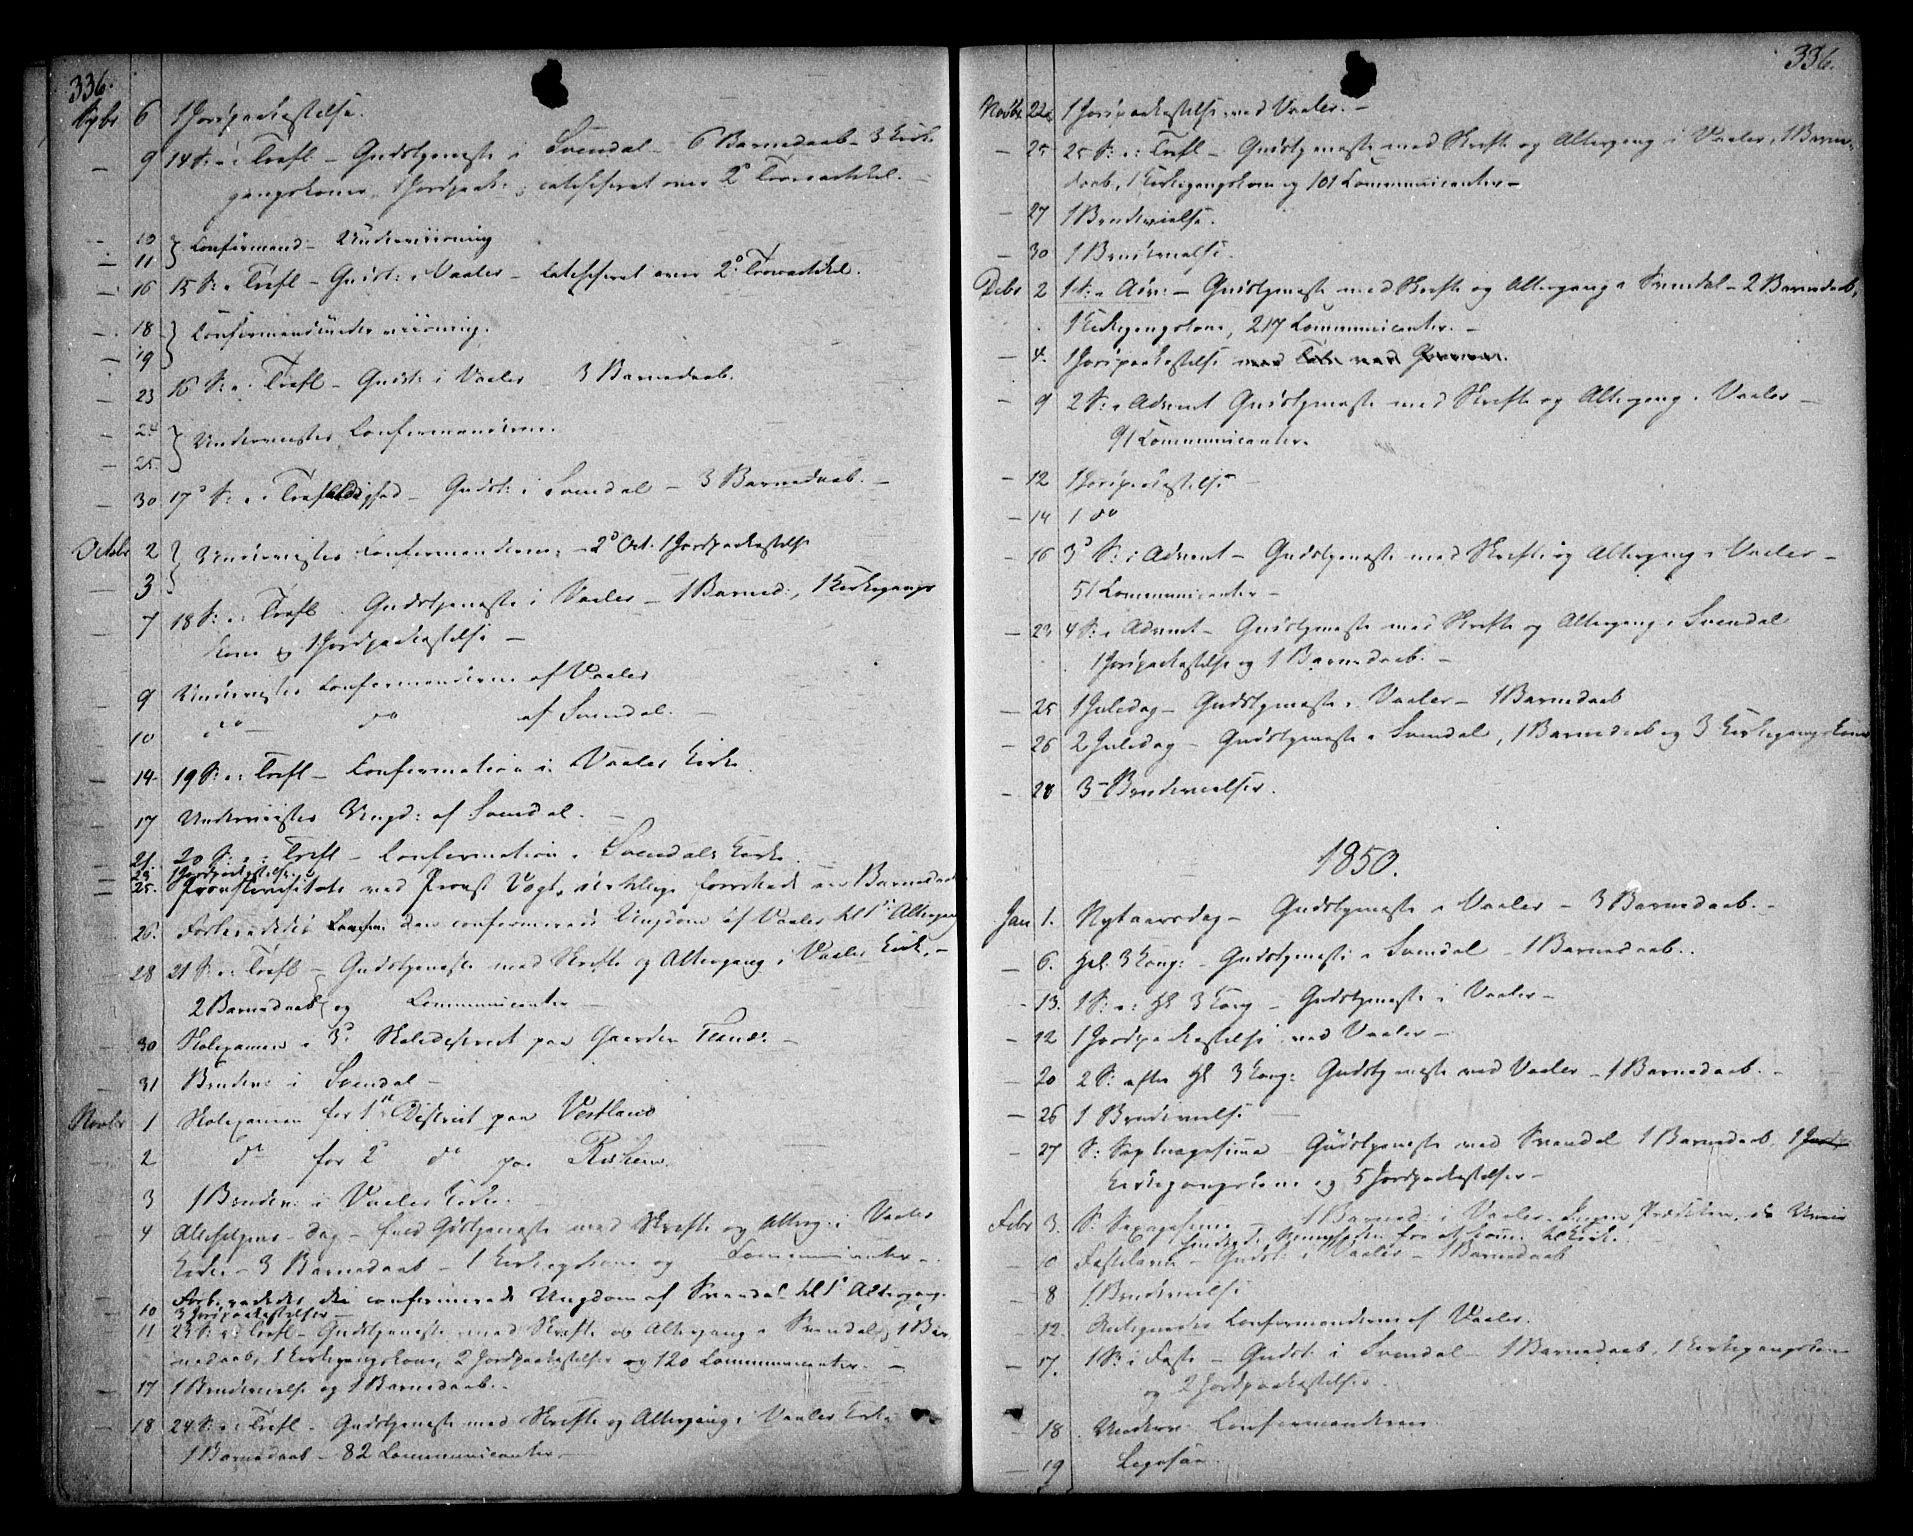 336.
Spbr 6 1 Jordpaakastelse.
— 9 14 S: e: Trefl — Gudstjeneste i Svendal — 6 Barnedaab — 3 Kirke
gangskoner, 1 Jordpaak: catechiseret over 2d Troesartikel. —
— 10 } Confirmand — Underviisning
— 11
— 16 15 S: e Trefl — Gudst: i Vaaler — catechiseret over 2d Troesartikel.
— 18 } Confirmandunderviisning.
— 19
— 23 16 S: e: Trefl — Gudst: i Vaaler 3 Barnedaab.
— 24 } Underviistes Confirmanderne.
— 25.
— 30 17d S: e: Trefoldighed — Gudst: i Svendal — 3 Barnedaab. —
Octobr 2 } Underviistes Confirmanderne, — 2d Oct. 1 Jordpaakastelse
3
— 7 18 S: e: Trefl. Gudstjeneste i Vaaler — 1 Barned:, 1 Kirkegangs
kone og 1 Jordpaakastelse —
— 9 Underviistes Confirmanderne af Vaaler
— 10 do — do af Svendal. —
— 14 19 S: e: Trefl — Confirmation i Vaaler Kirke.
— 17 Underviistes Ungd: af Svendal. —
— 21. 20 S: e: Trefl — Confirmation i Svendals Kirke.
— 23. 1 Jordpaakastelse
— 25. Provstevisitats ved Provst Vogt, Barnedaab
— 26. Forberededes den confirmerede Ungdom af Vaaler til 1st Altergang
— 28 21 S: e: Trefl — Gudstjeneste med Skrifte og Altergang i Vaaler Kirke. —
2 Barnedaab og Communicanter —
— 30 Skolexamen i 3d Skoledistrict paa Gaarden —
— 31 Brudev: i Svendal —
Novbr 1 Skolexamen for 1st District paa Vestland
— 2 do for 2d do paa
— 3 1 Brudev: i Vaaler Kirke.
— 4 Allehelgens — dag — Gudstjeneste med Skrifte og Alterg: i Vaaler
Kirke — 3 Barnedaab — 1 Kirkegkone og Communicanter —
Forberededes den confirmerede Ungdom af Svendal til 1st Altergang.
— 10 3 Jordpaakastelser —
— 11 23 S: e: Trefl — Gudstjeneste med Skrifte og Altergang i Svendal, 1 Bar
nedaab, 1 Kirkegangskone, 2 Jordpaakastelser og 120 Communicanter. —
— 17 1 Brudevielse og 1 Barnedaab. —
— 18 24 S: e: Trefl — Gudstjeneste med Skrifte og Altergang i Vaaler Kirke
1 Barnedaab — 82 Communicanter —
336.
Novbr 22 1 Jordpaakastelse ved Vaaler. —
— 25 25 S: e: Trefl — Gudstjeneste med Skrifte og Altergang i Vaaler, 1 Barne-
daab, 1 Kirkegangskone og 101 Communicanter —
— 27 1 Brudevielse.
— 30 1 Brudevielse.
Debr 2 1 S: e Adv: — Gudstjeneste med Skrifte og Altergang i Svendal — 2 Barnedaab,
1 Kirkegangskone, 217 Communicanter. —
— 4. 1 Jordpaakastelse
— 9 2 S: e Advent Gudstjeneste med Skrifte og Altergang i Vaaler —
91 Communicanter.
— 12 1 Jordpaakastelse —
— 14 1 do
— 16 3d S: i Advent — Gudstjeneste med Skrifte og Altergang i Vaaler —
51 Communicanter —
— 23 4 S: e Advent — Gudstjeneste med Skrifte og Altergang i Svendal
1 Jordpaakastelse og 1 Barnedaab. —
— 25 1 Juledag — Gudstjeneste i Vaaler — 1 Barnedaab
— 26 2 Juledag — Gudstjeneste i Svendal, 1 Barnedaab og 3 Kirkegangskoner
— 28 3 — Brudevielser.
1850.
Jan 1. Nytaarsdag — Gudstjeneste i Vaaler — 3 Barnedaab. —
— 6. Hel. 3 Kong: — Gudstjeneste i Svendal — 1 Barnedaab.
— 13. 1 S: e: Hl 3 Kong — Gudstjeneste i Vaaler —
— 12 1 Jordpaakastelse ved Vaaler —
— 20 2 S: efter Hl 3 Kong: Gudstjeneste ved Vaaler — 1 Barnedaab. —
— 26 1 Brudevielse —
— 27 S: Septuagesima — Gudstjeneste ved Svendal 1 Barnedaab, 1 Jord
Kirkegangskone og 5 Jordpaakastelser —
Febr 3. S: Sexagesima — 1 Barned: i Vaaler. Ingen Prædiken, da Uveir
hindrede Menigheden fra at komme til Kirke.
— 10 Fastelavn — Gudst: i Vaaler — 1 Barnedaab
— 8 1 Brudevielse
— 12. Antegnedes Confirmanderne af Vaaler.
— 17. 1 S: i Faste — Gudst: i Svendal — 1 Barnedaab, 1 Kirkegangskone
og 2 Jordpaakastelser.
— 18. Underv: Confirmanderne
— 19 Ligesaa.